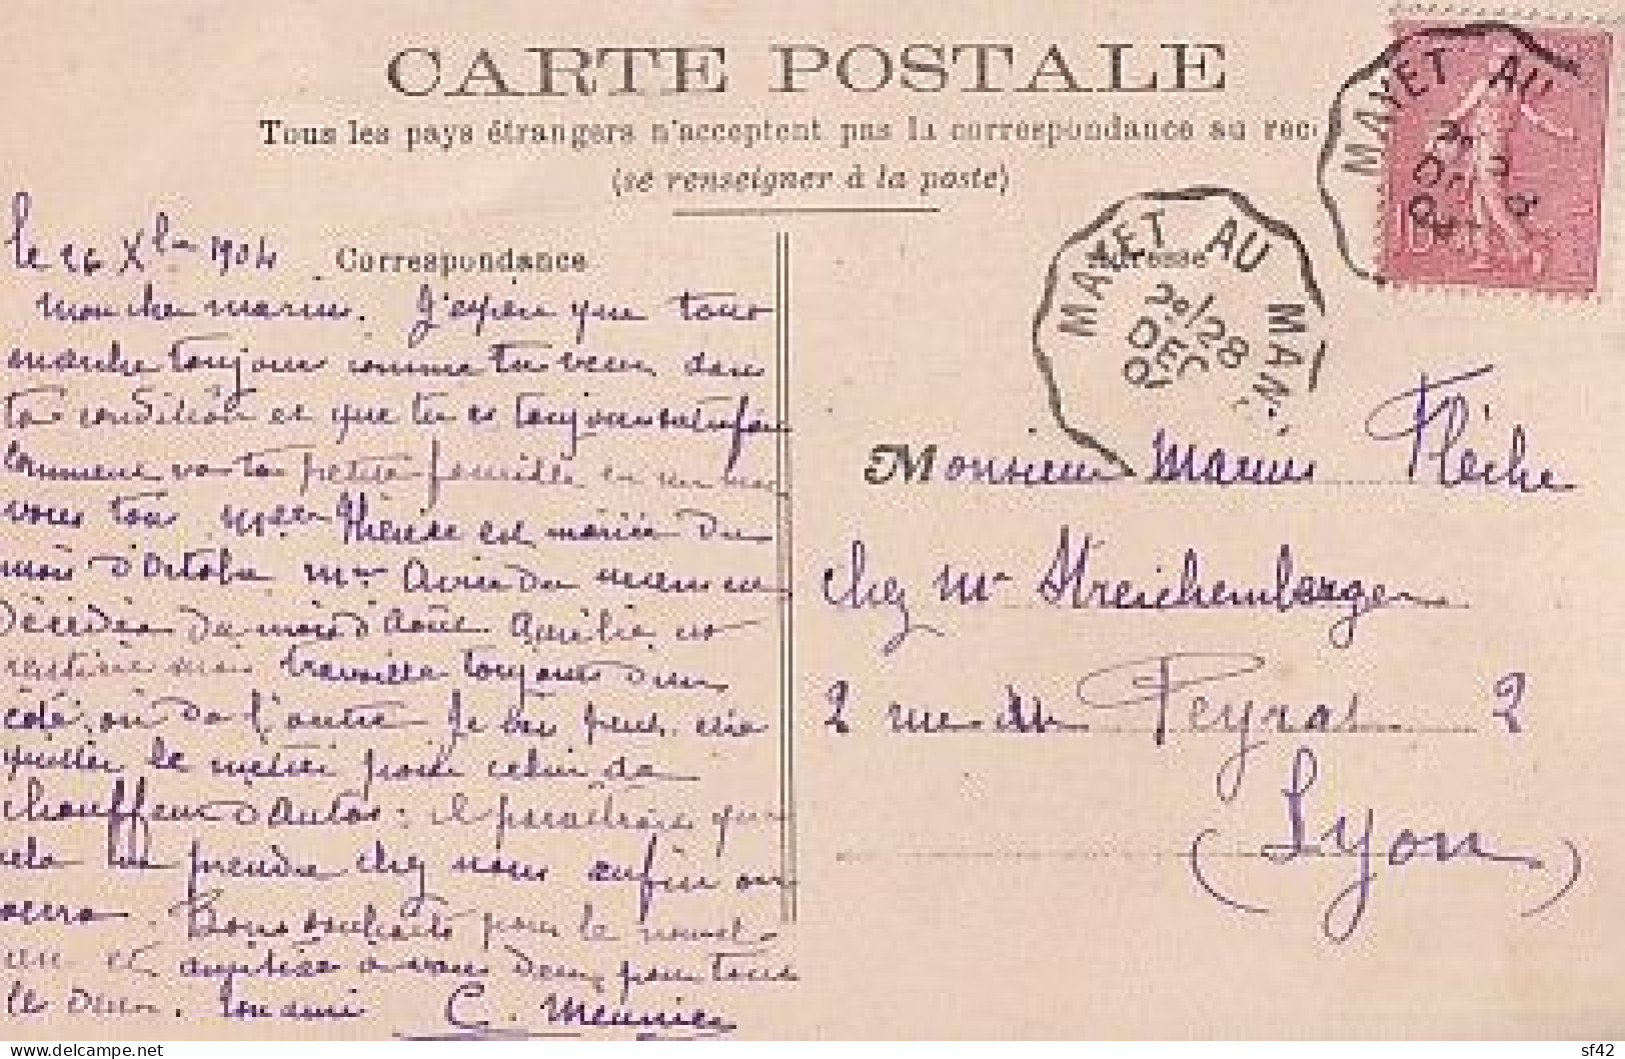 CARTE POSTALE
Tous les pays étrangers n'acceptent pas la correspondance au rec
(se renseigner à la poste)
MAYET AU
MAYET AU MAN
28
DEC
04
le 26 Xbre 1904
Correspondance
Adresse
Mon cher Marius. J'espère que tout
marche toujours comme tu veux dans
ta condition et que tu es toujours satisfait
Comment va ta petite famille et
vous tous Mlle Thérèse est mariée du
mois d'Octobre Mme
décédée du mois d'Août Aurélie est
mais travaille toujours d'un
côté ou de l'autre Je
quitter le métier pour celui de
chauffeur d'autos : il paraîtrait que
cela va prendre chez nous enfin on
verra. Bons souhaits pour le nouvel
an et amitiés à vous deux pour tous
les deux. Ton ami C. Meunier
Monsieur Marius Flèche
chez Mr Streichemberger
2 rue du Peyrat 2
(Lyon)
10